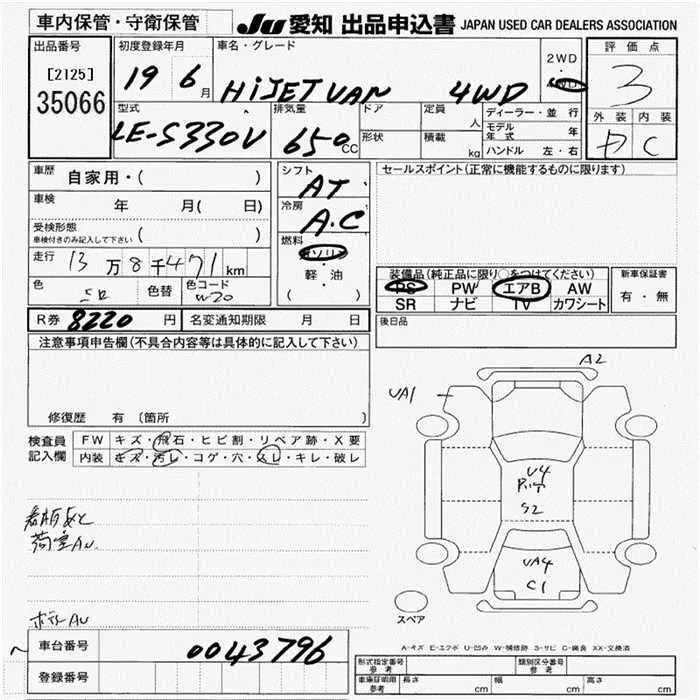 車内保管・守衛保管
JU 愛知 出品申込書 JAPAN USED CAR DEALERS ASSOCIATION
出品番号
[2125]
35066
初度登録年月
19 6 月
車名・グレード
HiJET VAN 4WD
2WD
4WD
評価点
3
外装 内装
C
型式
LE-S330V
排気量
650 CC
ドア
形状
定員
人
積載
kg
ディーラー・並行
モデル年式 年
ハンドル 左・右
車歴 自家用・( )
車検 年 月( 日)
受検形態
車検付きのみ記入して下さい ( )
走行 13 万 8 千 471 km
色 色替 色コード
W30
シフト
AT
冷房
A.C
燃料
ガソリン
軽・油
( )
セールスポイント(正常に機能するものに限ります)
装備品(純正品に限り○をつけてください)
PS PW エアB AW
SR ナビ TV カワシート
新車保証書
有・無
R券 8220 円 名変通知期限 月 日
後日品
注意事項申告欄(不具合内容等は具体的に記入して下さい)
修復歴 有 〔箇所 〕
検査員
記入欄
FW キズ・飛石・ヒビ割・リペア跡・X要
内装 キズ・汚レ・コゲ・穴・スレ・キレ・破レ
荷室AU
ボデーAU
A2
UA1
U4
S2
UA4
C1
スペア
A-キズ E-エクボ U-凹み W-補修跡 S-サビ C-腐食 XX-交換済
車台番号 0043796
登録番号
形式指定番号
参考
類別区分番号
参考
車庫証明用
参考
長さ cm 幅 cm 高さ cm